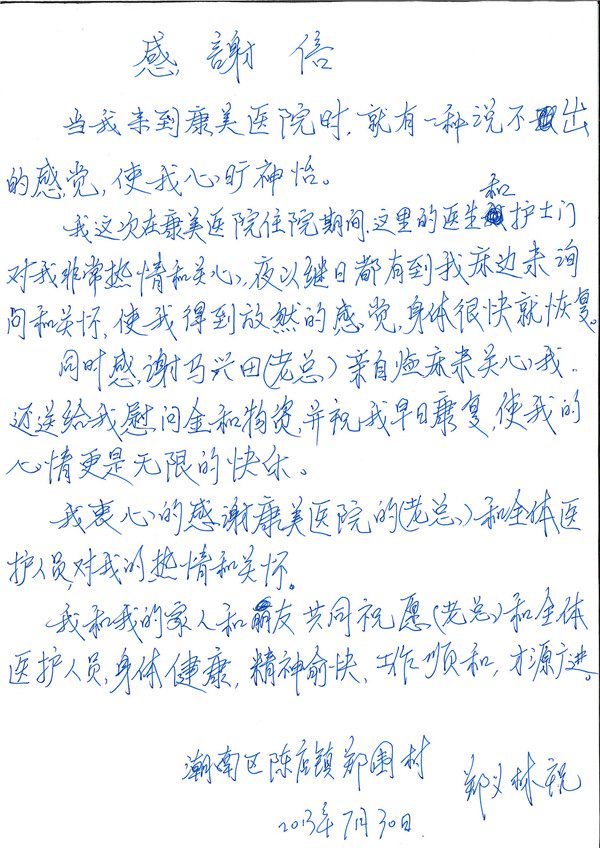 感謝信
当我来到康美医院时,就有一种说不出
的感觉,使我心旷神怡。
我这次在康美医院住院期间,这里的医生和护士门
对我非常热情和关心,夜以继日都有到我床边来询
问和关怀,使我得到放然的感觉,身体很快就恢复。
同时感谢马兴田(老总)亲自临床来关心我,
还送给我慰问金和物资,并祝我早日康复,使我的
心情更是无限的快乐。
我衷心的感谢康美医院的(老总)和全体医
护人员,对我的热情和关怀。
我和我的家人和朋友共同祝愿(老总)和全体
医护人员,身体健康,精神愉快,工作顺和,才源广进。
潮南区陈店镇郑围村
郑义林祝
2013年7月30日